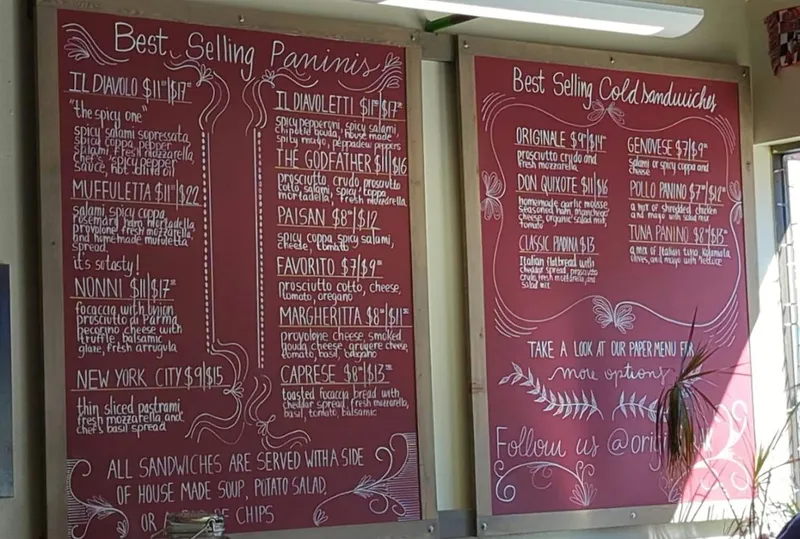 Best Selling Paninis
IL DIAVOLO $11 | $17
"the spicy one"
spicy salami sopressata,
spicy coppa, pepper
salami, fresh mozzarella,
chef's spicy pepper
sauce, hot chili oil
MUFFULETTA $11 | $22
salami spicy coppa,
rosemary ham, mortadella,
provolone fresh mozzarella,
and homemade muffuletta
spread
it's so tasty!
NONNI $11 | $17
focaccia with onion
prosciutto di Parma,
pecorino cheese with
truffle, balsamic
glaze, fresh arrugula
NEW YORK CITY $9 | $15
thin sliced pastrami,
fresh mozzarella and
chef's basil spread
IL DIAVOLETTI $11 | $17
spicy pepperoni, spicy salami,
chipotle gouda, house made
spicy mayo, peppadew peppers
THE GODFATHER $11 | $16
prosciutto crudo prosciutto
cotto, salami, spicy coppa
mortadella, fresh mozzarella
PAISAN $8 | $12
spicy coppa, spicy salami,
cheese, tomato
FAVORITO $7 | $9
prosciutto cotto, cheese,
tomato, oregano
MARGHERITTA $8 | $11
provolone cheese, smoked
gouda cheese, gruyere cheese,
tomato, basil, oregano
CAPRESE $8 | $13
toasted focaccia bread with
cheddar spread, fresh mozzarella,
basil, tomato, balsamic
ALL SANDWICHES ARE SERVED WITH A SIDE
OF HOUSE MADE SOUP, POTATO SALAD,
OR OF CHIPS
Best Selling Cold Sandwiches
ORIGINALE $9 | $14
prosciutto crudo and
fresh mozzarella
DON QUIXOTE $11 | $16
homemade garlic mousse
seasoned ham, manchego
cheese, organic salad mix,
tomato
CLASSIC PIADINA $13
Italian flatbread with
cheddar spread, prosciutto
crudo, fresh mozzarella, and
salad mix
GENOVESE $7 | $9
salami or spicy coppa and
cheese
POLLO PANINO $7 | $12
a mix of shredded chicken
and mayo with salad mix
TUNA PANINO $8 | $13
a mix of Italian tuna, kalamata
olives, and mayo with lettuce
TAKE A LOOK AT OUR PAPER MENU FOR
more options
Follow us @orig